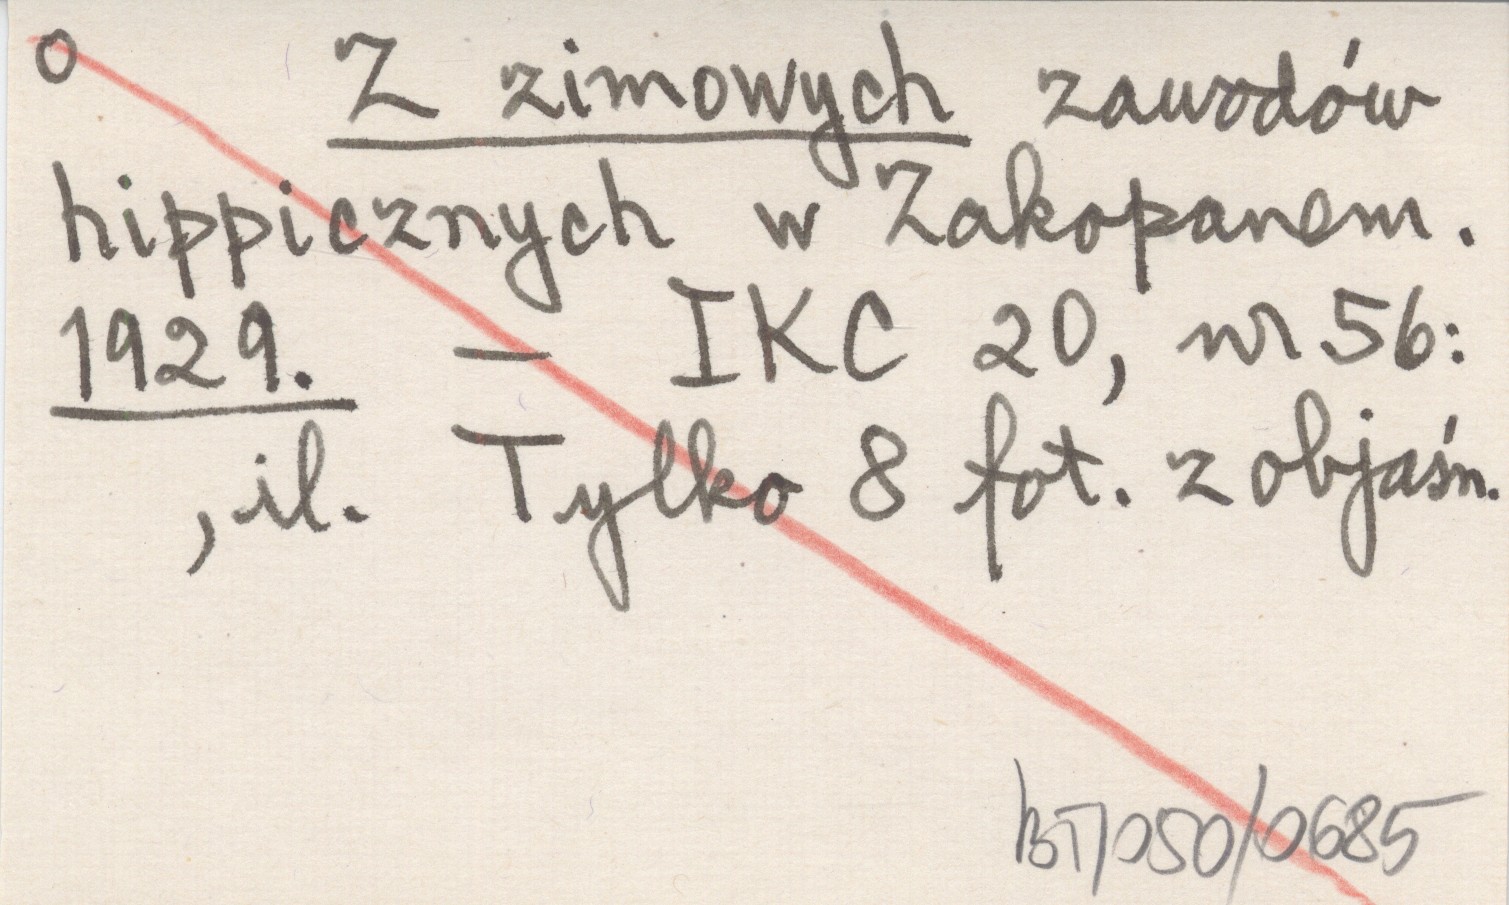 o Z zimowych zawodów
hippicznych w Zakopanem.
1929. – IKC 20, nr 56:
, il. Tylko 8 fot. z objaśn.
BT/050/0685